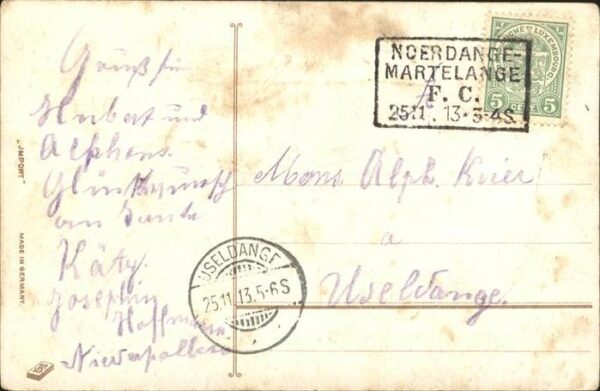 Gruß für
Hubert und
Alphons.
Glückwunsch
an Tante
Käty.
Josephin
Hoffmann
"IMPORT"
MADE IN GERMANY.
NOERDANGE-
MARTELANGE
F. C.
25 11 . 13 * 5-4S.
LUXEMBOURG
5 5
Mons. Alph. Krier
a
Useldange.
USELDANGE
25.11.13.5-6S